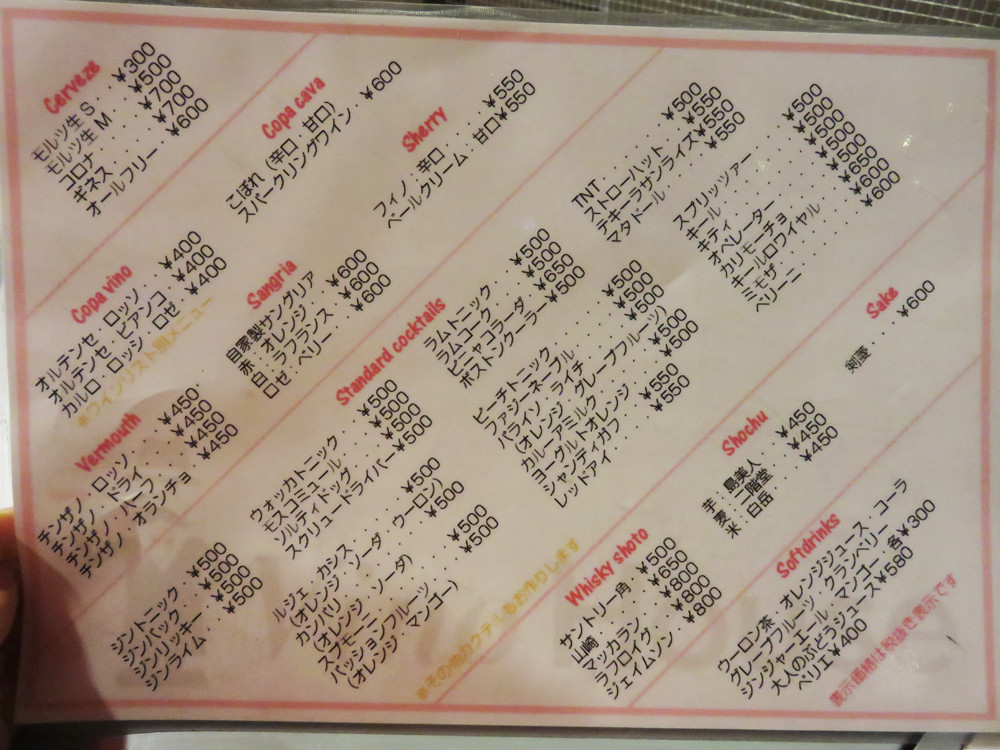 Cerveze
モルツ生 S . . ¥300
モルツ生 M . . ¥500
コロナ . . . . . ¥700
ギネス . . . . . ¥700
オールフリー . . ¥600
Copa cava
こぼれ (辛口 甘口)
スパークリングワイン . ¥600
Sherry
フィノ : 辛口 . . . . ¥550
ペールクリーム : 甘口 ¥550
TNT . . . . . . . . ¥500
ストローハット . . . ¥550
テキーラサンライズ ¥550
マタドール . . . . . ¥550
スプリッツァー . . . . ¥500
キール . . . . . . . ¥500
キティ . . . . . . . ¥500
オペレーター . . . . ¥500
カリモーチョ . . . . ¥500
キールロワイヤル . . ¥650
ミモザ . . . . . . . ¥600
ベリーニ . . . . . . ¥600
Copa vino
オルテンセ . ロッソ . . ¥400
オルテンセ . ビアンコ ¥400
カルロ ロッシ . ロゼ . ¥400
※ワインリスト別メニュー
Sangria
自家製サングリア
赤 : オレンジ . . . ¥600
白 : ラフランス . . ¥600
ロゼ : ベリー . . . ¥600
Vermouth
チンザノ . ロッソ . . ¥450
チンザノ . ドライ . . ¥450
チンザノ . バーフ . . ¥450
チンザノ . オランチョ ¥450
Standard cocktails
ジントニック . . . ¥500
ジンバック . . . . ¥500
ジンリッキー . . . ¥500
ジンライム . . . . ¥500
ウオッカトニック . . ¥500
モスコミュール . . . ¥500
ソルティドッグ . . . ¥500
スクリュードライバー ¥500
ルジェ . カシス . . . . ¥500
(オレンジ . ソーダ . ウーロン)
カンパリ . . . . . . ¥500
(オレンジ . ソーダ)
スプモーニ . . . . . ¥500
パッションフルーツ . . ¥500
(オレンジ . マンゴー)
ラムトニック . . . ¥500
ラムコーク . . . . ¥500
ピニャコラーダ . . ¥650
ボストンクーラー ¥500
ピーチトニック . . . . ¥500
ファジーネーブル . . . ¥500
パライソ . ライチ . . . ¥500
(オレンジ . グレープフルーツ)
カルーアミルク . . . . ¥500
ヨーグルトオレンジ . . ¥500
シャンディガフ . . . . ¥550
レッドアイ . . . . . . ¥550
※その他カクテルもお作りします
Sake
剣菱 . . . ¥600
Shochu
芋 : 島美人 . . ¥450
麦 : 二階堂 . . ¥450
米 : 白岳 . . . ¥450
Whisky shoto
サントリー角 . ¥500
山崎 . . . . . ¥650
マッカラン . . ¥800
ラフロイグ . . ¥800
ジェイムソン . ¥800
Softdrinks
ウーロン茶 . オレンジジュース . コーラ
グレープフルーツ . クランベリー
ジンジャーエール . マンゴー . 各¥300
大人のぶどうジュース ¥580
ペリエ ¥400
表示価格は税抜き表示です